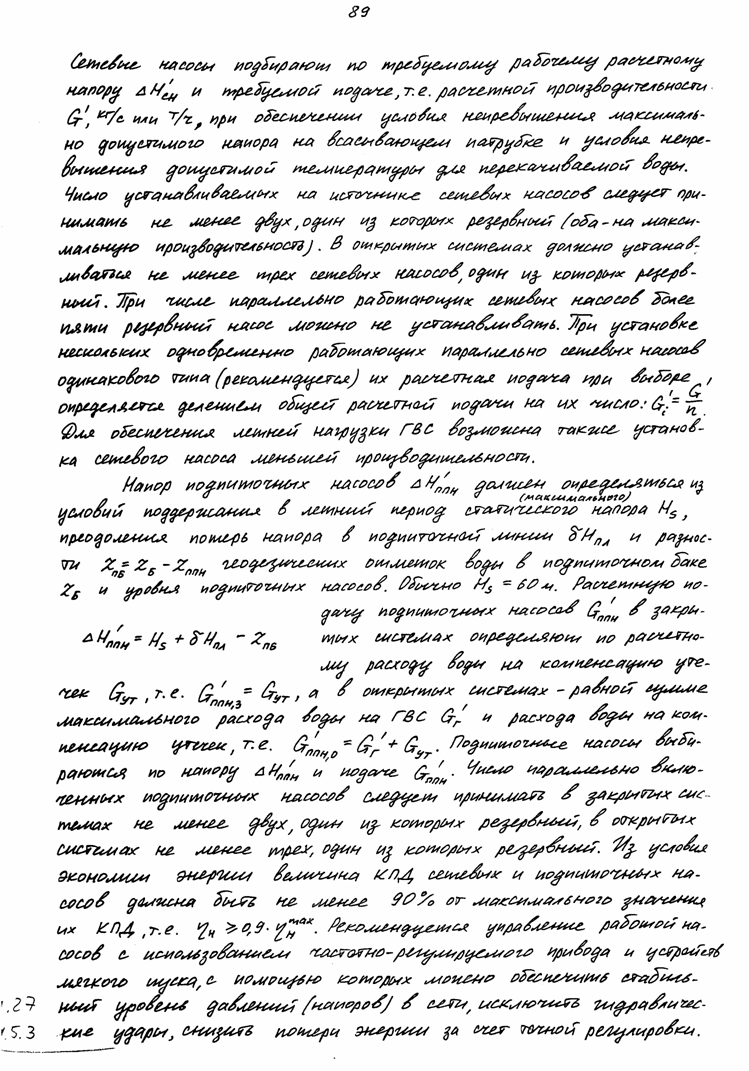 89
Сетевые насосы подбирают по требуемому рабочему расчетному
напору ΔH'сн и требуемой подаче, т.е. расчетной производительности
G', кг/с или т/ч, при обеспечении условия непревышения максималь-
но допустимого напора на всасывающем патрубке и условия непре-
вышения допустимой температуры для перекачиваемой воды.
Число устанавливаемых на источнике сетевых насосов следует при-
нимать не менее двух, один из которых резервный (оба - на макси-
мальную производительность). В открытых системах должно устанав-
ливаться не менее трех сетевых насосов, один из которых резерв-
ный. При числе параллельно работающих сетевых насосов более
пяти резервный насос можно не устанавливать. При установке
нескольких одновременно работающих параллельно сетевых насосов
одинакового типа (рекомендуется) их расчетная подача при выборе
определяется делением общей расчетной подачи на их число: G'i = G'/n.
Для обеспечения летней нагрузки ГВС возможна также установ-
ка сетевого насоса меньшей производительности.
Напор подпиточных насосов ΔH'ппн должен определяться из
условий поддержания в летний период статического (максимального) напора Hs,
преодоления потерь напора в подпиточной линии δHпл и разнос-
ти Zпб = Zб - Zппн геодезических отметок воды в подпиточном баке
Zб и уровня подпиточных насосов. Обычно Hs = 60 м. Расчетную по-
дачу подпиточных насосов G'ппн в закры-
ΔH'ппн = Hs + δHпл - Zпб тых системах определяют по расчетно-
му расходу воды на компенсацию уте-
чек Gут, т.е. G'ппн,з = Gут, а в открытых системах - равной сумме
максимального расхода воды на ГВС G'г и расхода воды на ком-
пенсацию утечек, т.е. G'ппн,о = G'г + Gут. Подпиточные насосы выби-
раются по напору ΔH'ппн и подаче G'ппн. Число параллельно вклю-
ченных подпиточных насосов следует принимать в закрытых сис-
темах не менее двух, один из которых резервный, в открытых
системах не менее трех, один из которых резервный. Из условия
экономии энергии величина КПД сетевых и подпиточных на-
сосов должна быть не менее 90% от максимального значения
их КПД, т.е. ηн ≥ 0,9·ηн^max. Рекомендуется управление работой на-
сосов с использованием частотно-регулируемого привода и устройств
мягкого пуска, с помощью которых можно обеспечить стабиль-
.27 ный уровень давлений (напоров) в сети, исключить гидравличес-
.5.3 кие удары, снизить потери энергии за счет точной регулировки.